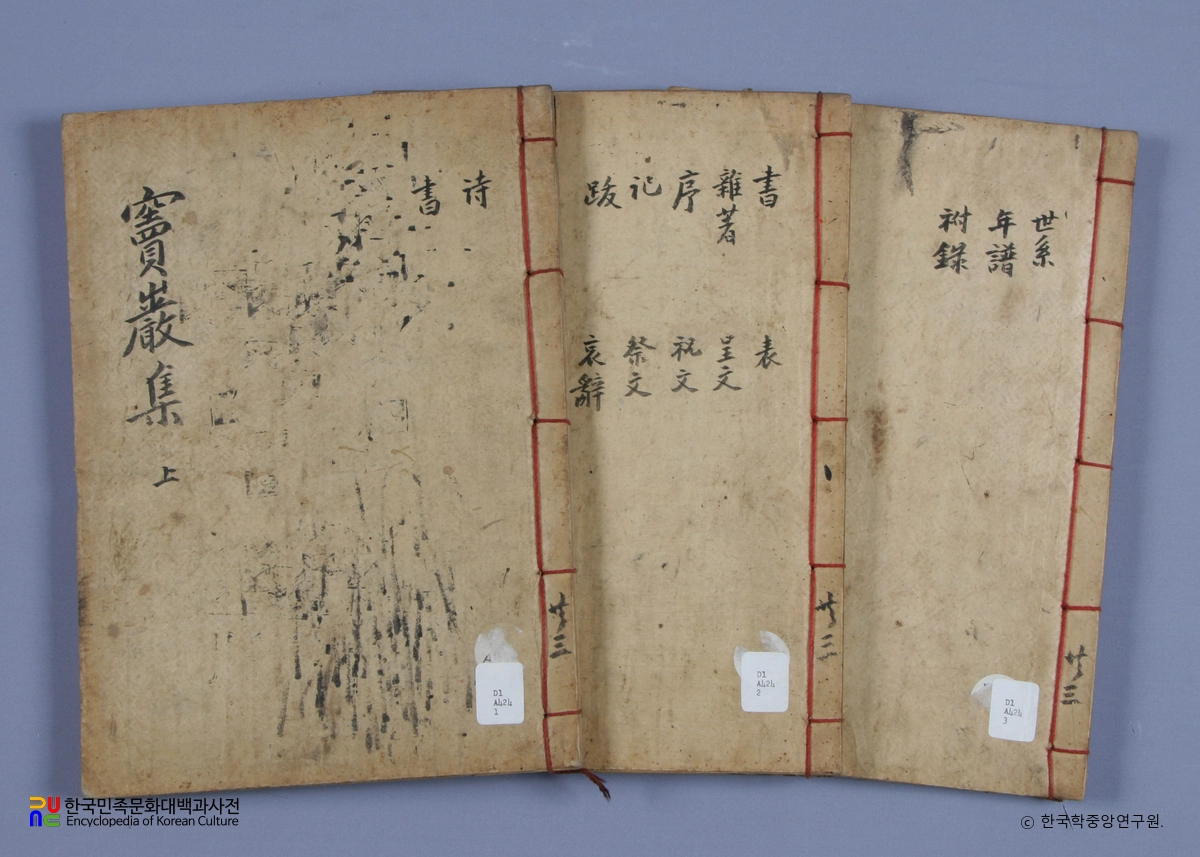 竇巖集
上
詩
書
共三
D1
A424
1
書
雜著
序
記
跋
表
呈文
祝文
祭文
哀辭
共三
D1
A424
2
世系
年譜
附錄
共三
D1
A424
3
한국민족문화대백과사전
Encyclopedia of Korean Culture
ⓒ 한국학중앙연구원.